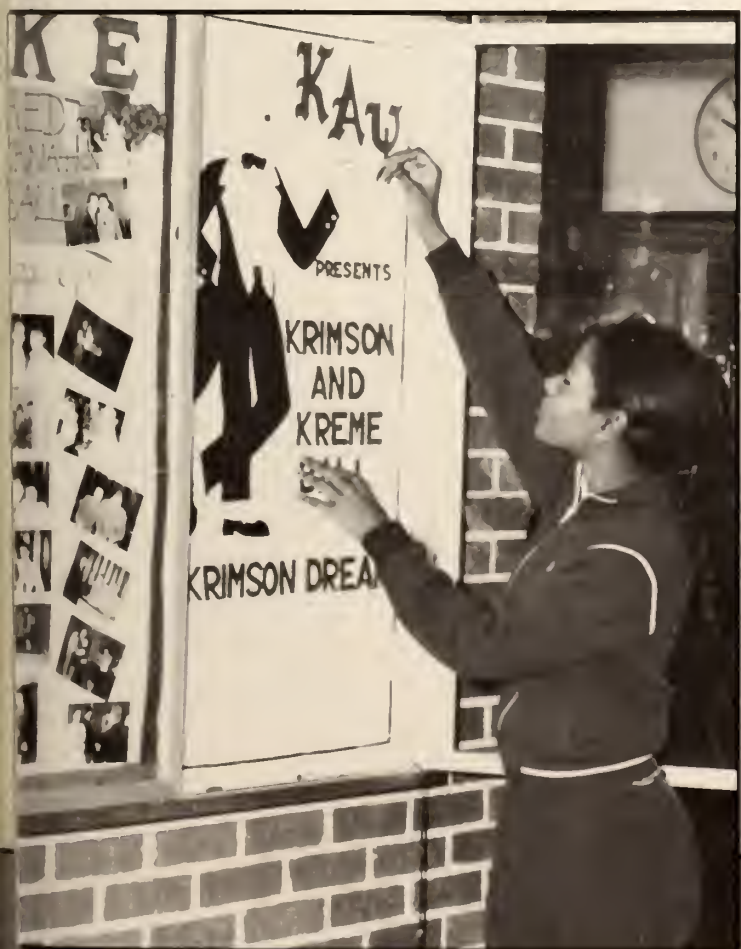 K E
KAΨ
PRESENTS
KRIMSON
AND
KREME
KRIMSON DREA